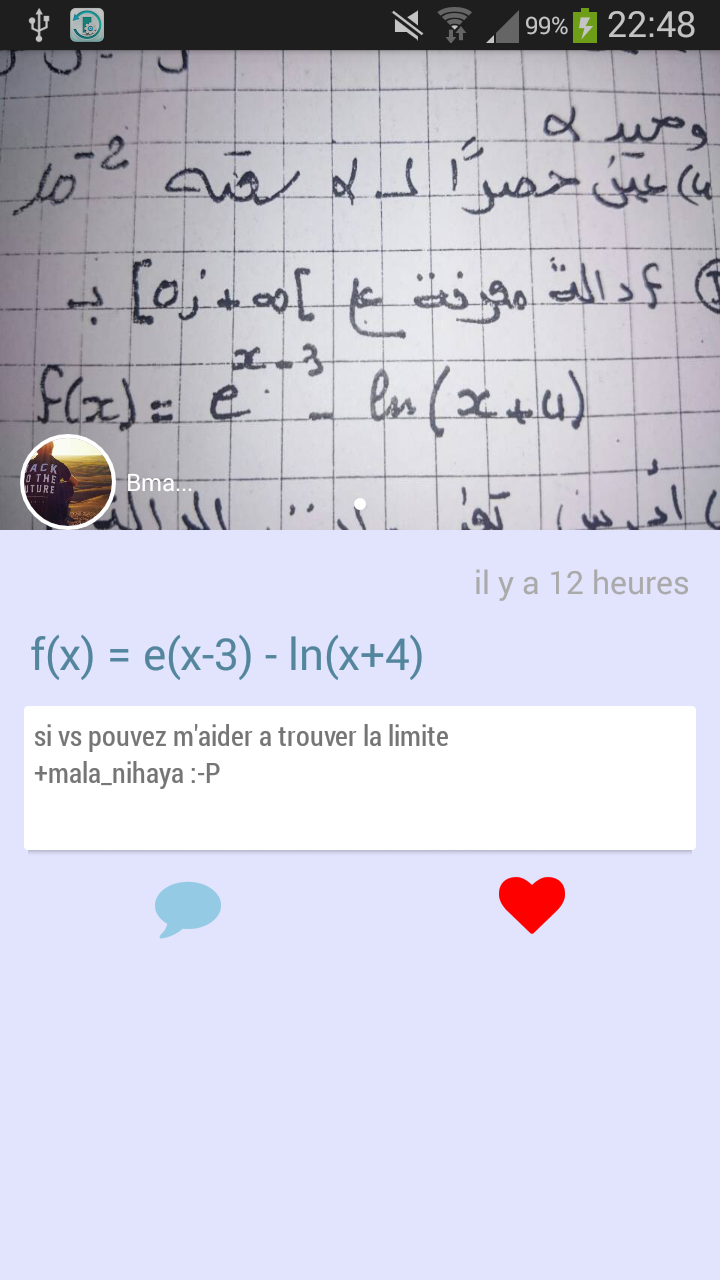 99% 22:48
وحيد α
4) عيّن حصرًا لـ α سعته 10⁻²
f دالة معرفة ع ]0;+∞[ بـ
f(x) = e^{x-3} - ln(x+4)
ACK
O THE
UTURE
Bma...
il y a 12 heures
f(x) = e(x-3) - ln(x+4)
si vs pouvez m'aider a trouver la limite
+mala_nihaya :-P